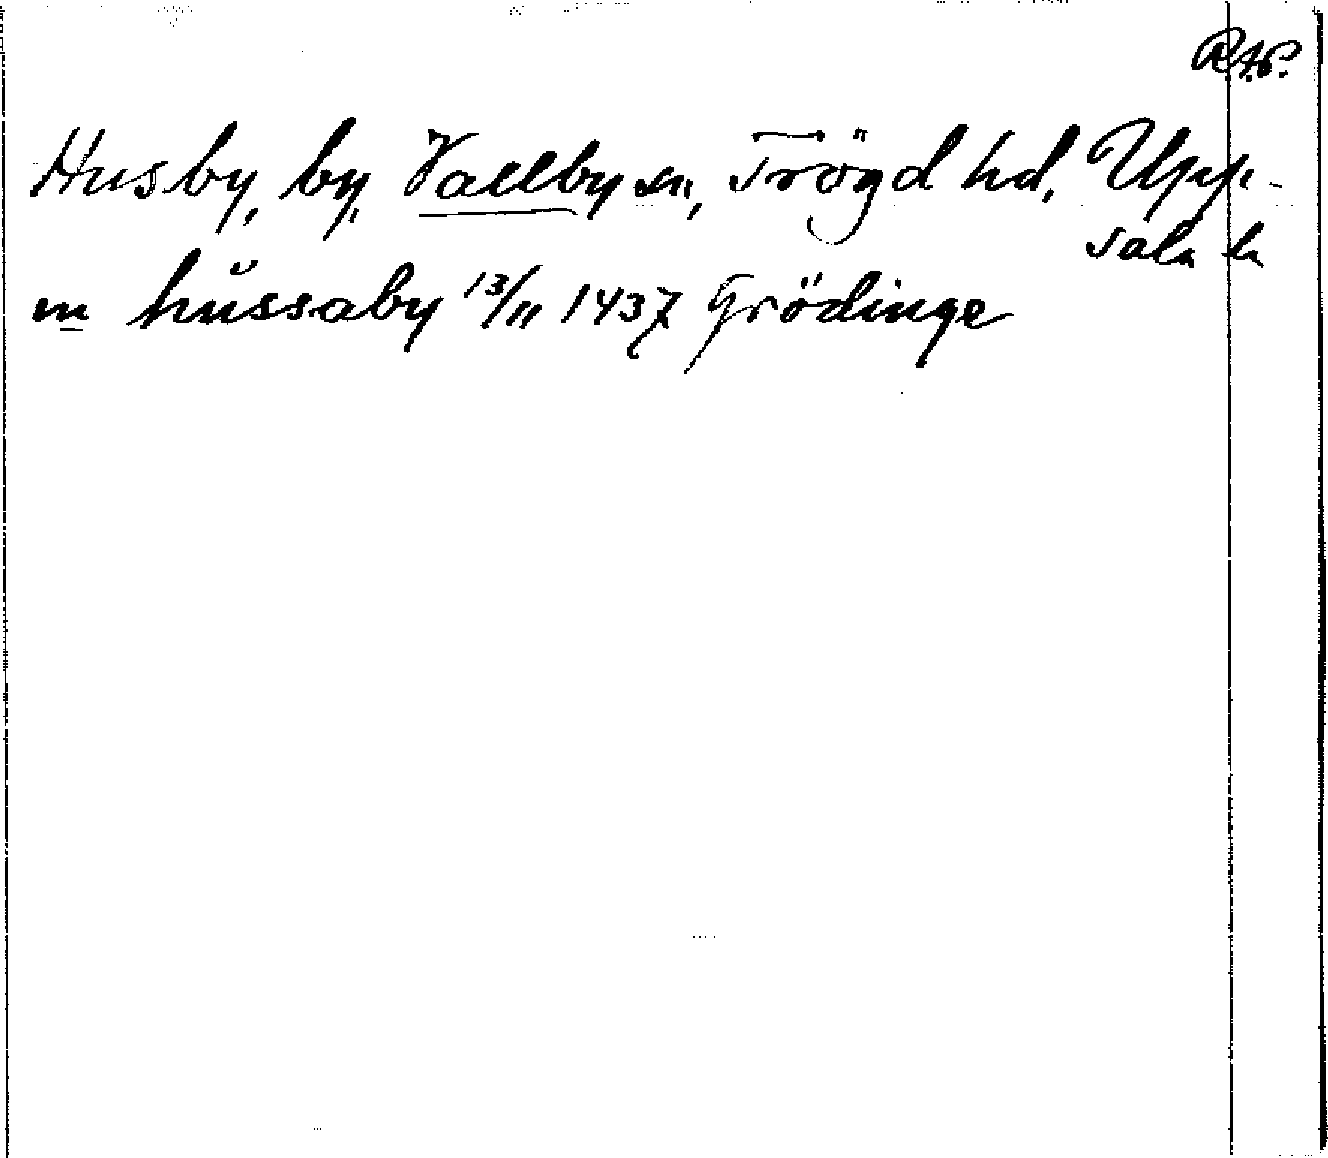 RAP.
Husby, by, Vallby sn, Trögd hd, Upp-
sala ln
m hussaby 13/11 1437 Grödinge